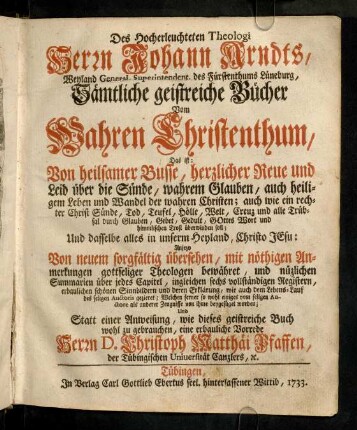 Des Hocherleuchteten Theologi
Herrn Johann Arndts,
Weyland General-Superintendent. des Fürstenthums Lüneburg,
Sämtliche geistreiche Bücher
Vom
Wahren Christenthum,
Das ist:
Von heilsamer Busse, hertzlicher Reue und
Leid über die Sünde, wahrem Glauben, auch heili-
gem Leben und Wandel der wahren Christen; auch wie ein rech-
ter Christ Sünde, Tod, Teufel, Hölle, Welt, Creutz und alle Trüb-
sal durch Glauben, Gebet, Gedult, GOttes Wort und
himmlischen Trost überwinden soll;
Und dasselbe alles in unserm Heyland, Christo JEsu:
Anjetzo
Von neuem sorgfältig übersehen, mit nöthigen An-
merkungen gottseliger Theologen bewähret, und nüzlichen
Summarien über jedes Capitel, ingleichen sechs vollständigen Registern,
erbaulichen schönen Sinnbildern und deren Erklärung, wie auch dem Lebens-Lauf
des seligen Auctoris gezieret; Welchen ferner so wohl einiges vom seligen Au-
ctore als anderer Zeugnisse von ihme beygefüget worden;
Und
Statt einer Anweisung, wie dieses geistreiche Buch
wohl zu gebrauchen, eine erbauliche Vorrede
Herrn D. Christoph Matthäi Pfaffen,
der Tübingischen Universität Canzlers, ꝛc.
Tübingen,
In Verlag Carl Gottlieb Ebertus seel. hinterlassener Wittib, 1733.